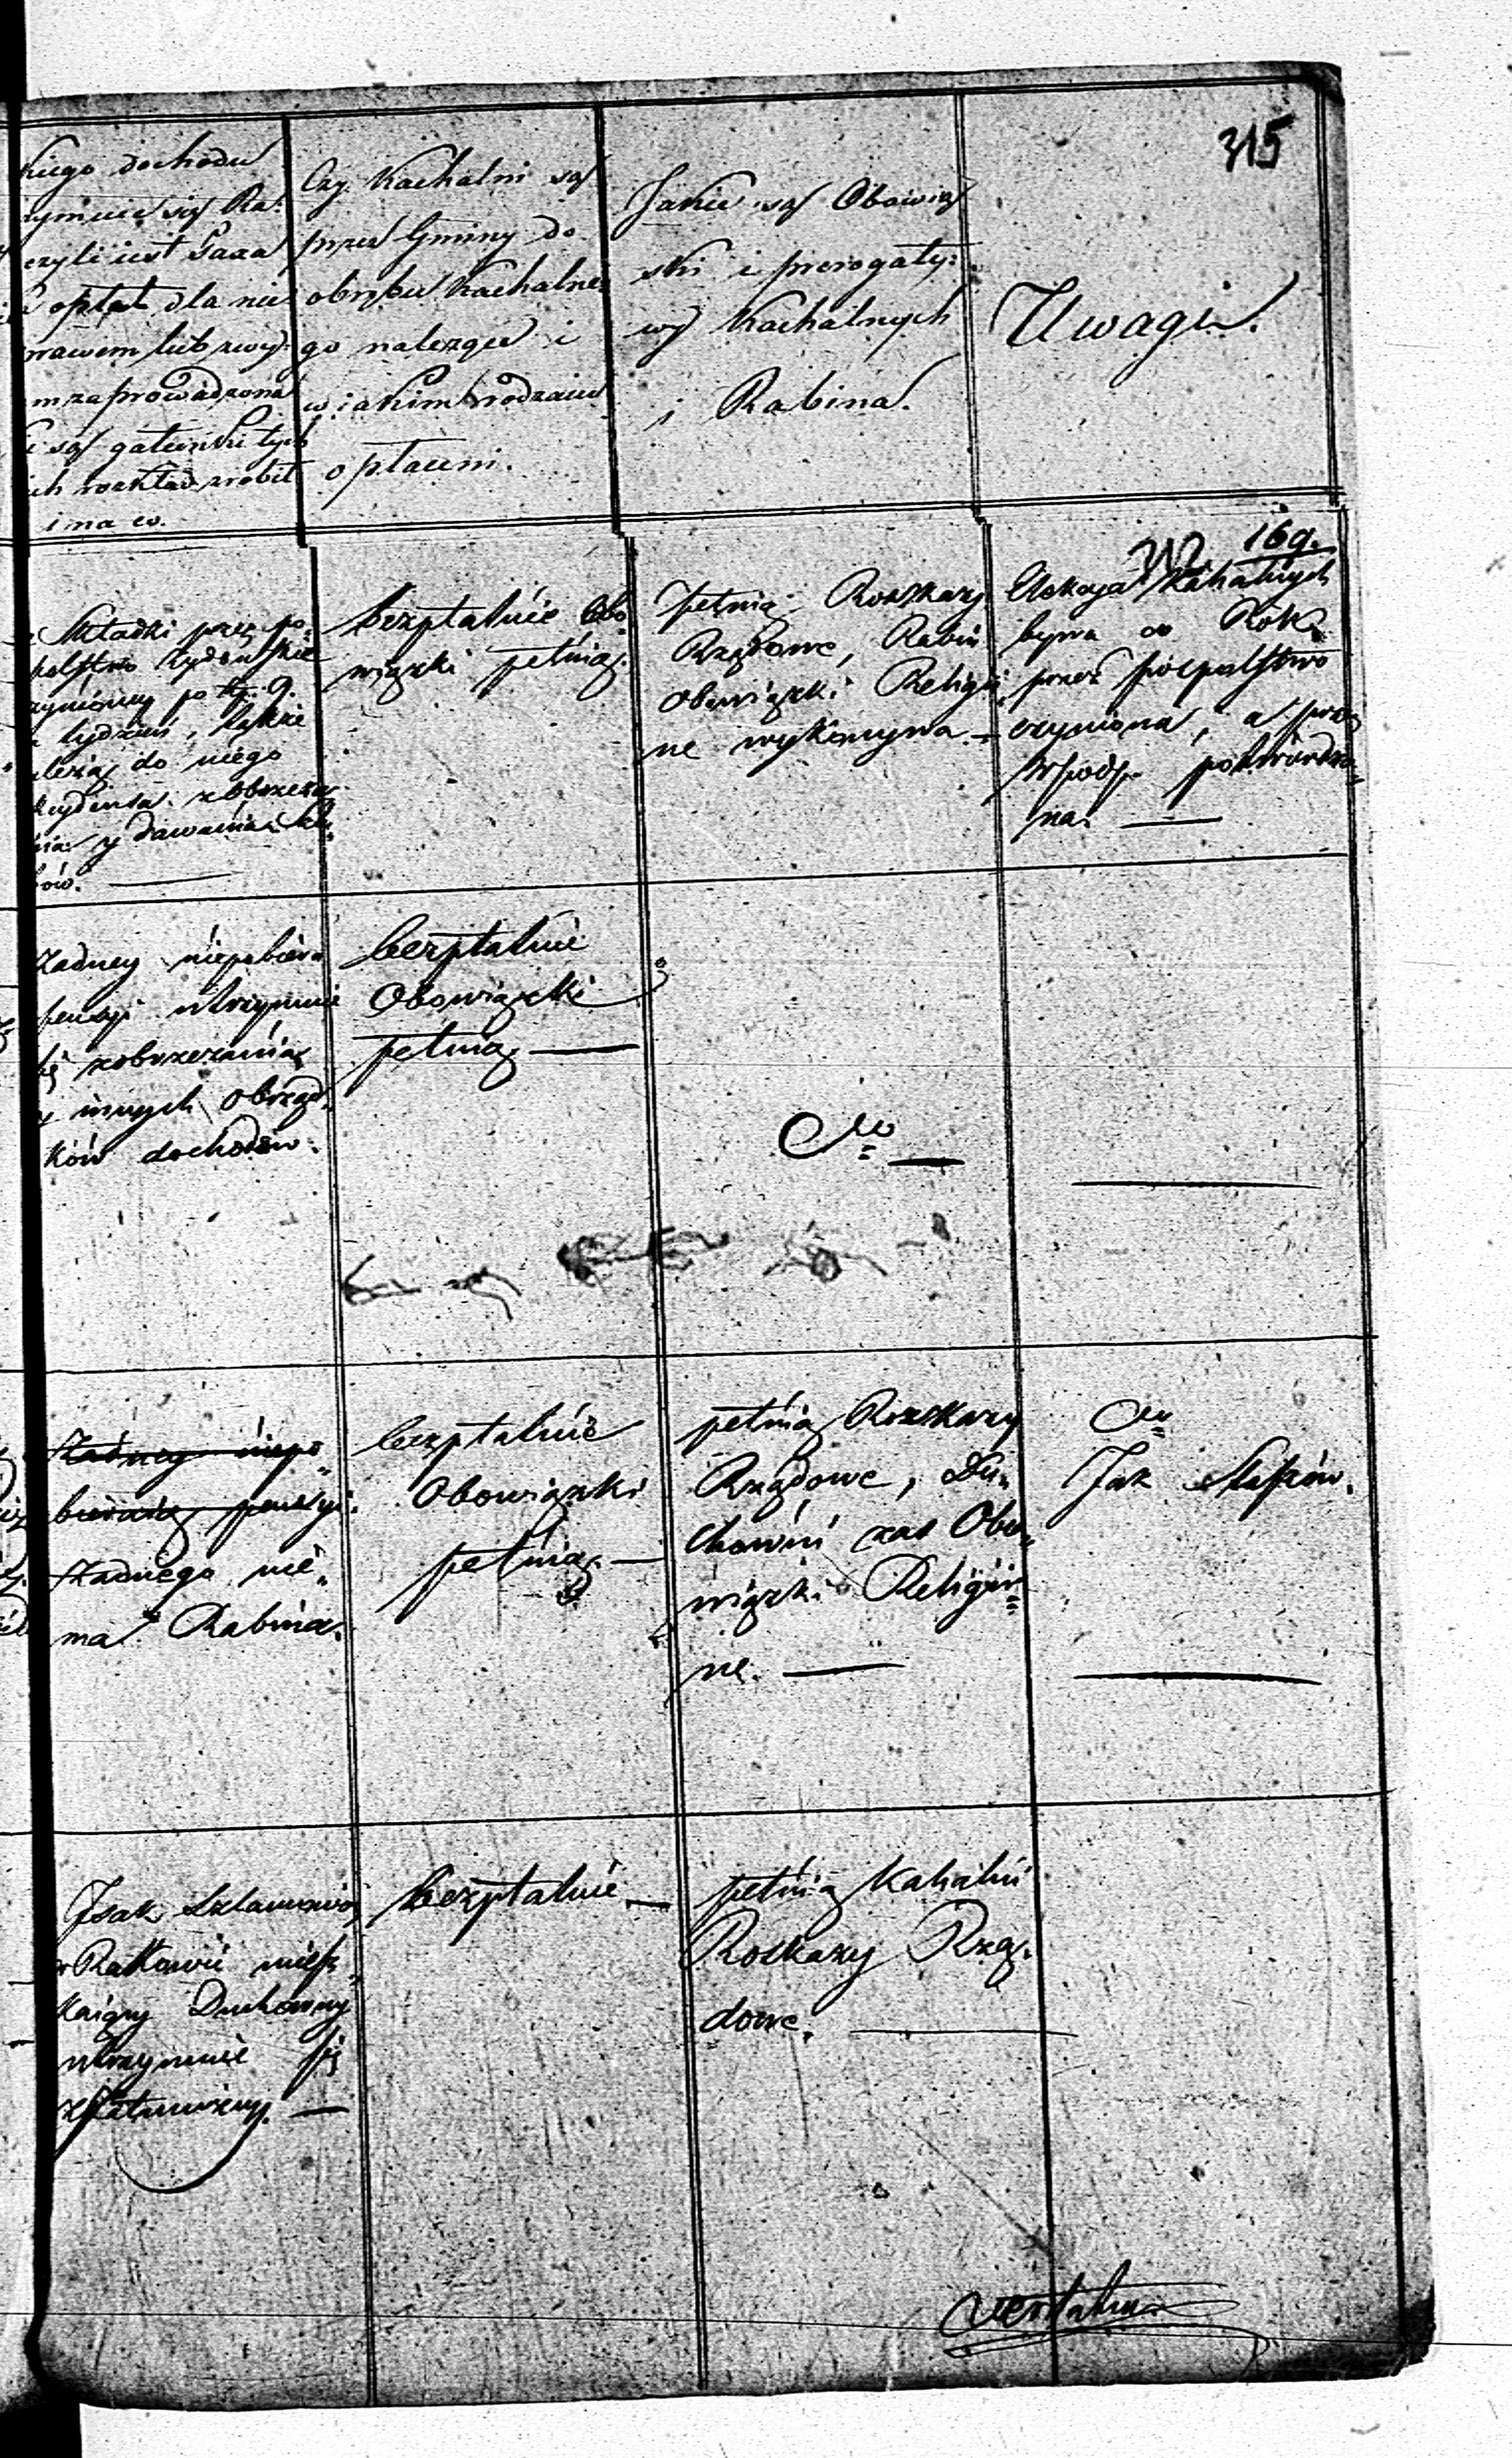 315
kiego dochodu
zymuie są Ra:
czyli iest Taxa
opłat dla nie
prawem lub zwy:
m zaprowadzona
są gatunki tych
ich rozkład robił
i ma co.
Czy Kachalni są
przez Gminy do
obrębu Kachalne:
go należące i
w iakim rodzaiu
opłaceni.
Jakie są Obowią
zki i prerogaty:
wy Kachalnych
i Rabina.
Uwagi.
169.
Składki przez po:
spolstwo Żydowskie
czynioney po 9.
tydzień, także
należą do niego
akcydensa z obrzeza
nia y dawania ślu
bów.
bezpłatnie Obo
wiązki pełnią.
Pełnią Rozkazy
Rządowe, Rabin
obowiązki Religii
ne wykonywa.
Elekcya Kahalnych
bywa co Rok
przez pospolstwo
czyniona, a przez
potwierdzo
na.
Żadney niepobiera
pensyi utrzymuie
się z obrzezania
y innych obrząd
ków dochodów.
bezpłatnie
Obowiązki
pełnią
Żadney niepo
bieraią pensyi.
Żadnego nie
ma Rabina.
bezpłatnie
Obowiązki
pełnią.
pełnią Rozkazy
Rządowe, Du
chowni zaś Obo
wiązki Religii
ne.
Jak Staszów.
Jsak Szlamowicz
w Rakowie miesz
kaiący Duchowny
utrzymuie się
bezpłatnie
pełnią Kahalni
Roskazy Rzą
dowe.
Vertatur